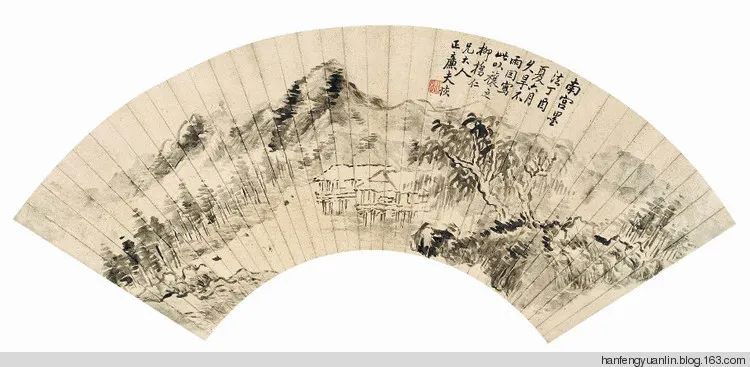 南宮墨
法丁酉
夏六月
久旱不
雨因寫
此以禳之
柳橋仁
兄大人
正廉夫恢
hanfengyuanlin.blog.163.com